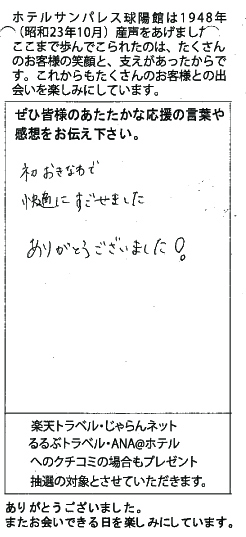 ホテルサンパレス球陽館は1948年
(昭和23年10月)産声をあげました
ここまで歩んでこられたのは、たくさん
のお客様の笑顔と、支えがあったからで
す。これからもたくさんのお客様との出
会いを楽しみにしています。
ぜひ皆様のあたたかな応援の言葉や
感想をお伝え下さい。
初おきなわで
快適にすごせました
ありがとうございました!
楽天トラベル・じゃらんネット
るるぶトラベル・ANA@ホテル
へのクチコミの場合もプレゼント
抽選の対象とさせていただきます。
ありがとうございました。
またお会いできる日を楽しみにしています。